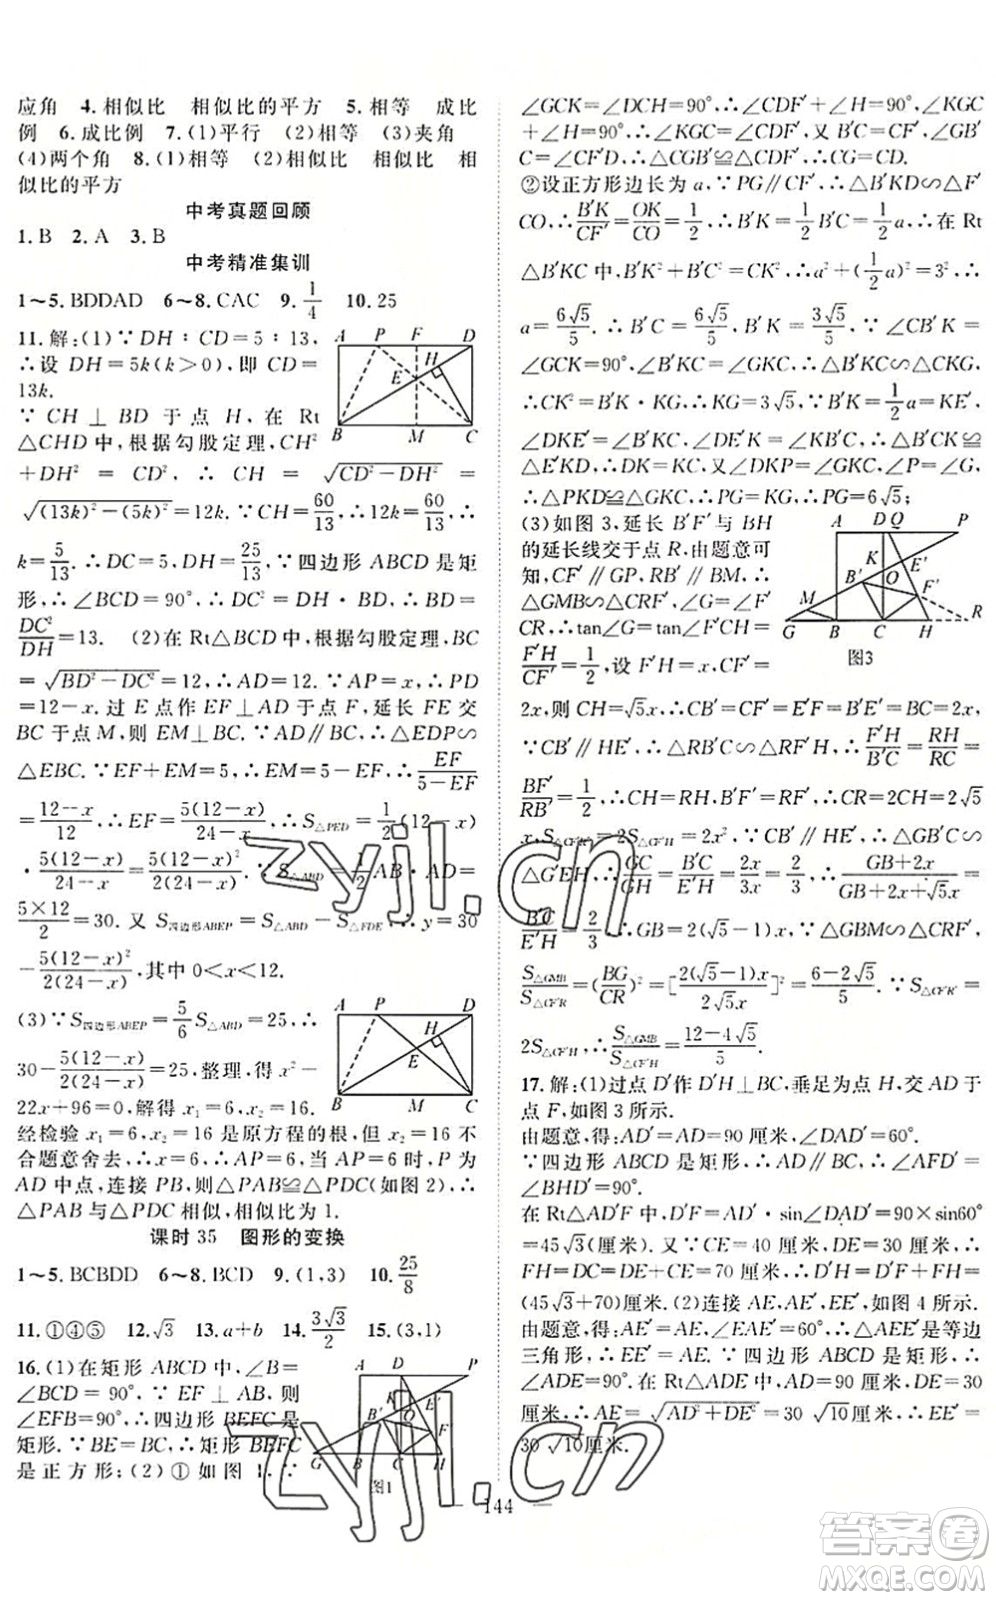 应角　4.相似比　相似比的平方　5.相等　成比
例　6.成比例　7.(1)平行　(2)相等　(3)夹角
(4)两个角　8.(1)相等　(2)相似比　相似比　相
似比的平方
中考真题回顾
1.B　2.A　3.B
中考精准集训
1～5.BDDAD　6～8.CAC　9.1/4　10.25
11.解:(1)∵DH∶CD=5∶13,
∴设 DH=5k(k>0),即 CD=
13k.
∵CH⊥BD 于点 H,在 Rt
△CHD 中,根据勾股定理,CH²
+DH²=CD²,∴CH=√(CD²-DH²)=
√((13k)²-(5k)²)=12k.∵CH=60/13,∴12k=60/13,∴
k=5/13.∴DC=5,DH=25/13.∵四边形 ABCD 是矩
形,∴∠BCD=90°,∴DC²=DH·BD,∴BD=
DC²/DH=13.　(2)在 Rt△BCD 中,根据勾股定理,BC
=√(BD²-DC²)=12,∴AD=12.∵AP=x,∴PD
=12-x.过 E 点作 EF⊥AD 于点 F,延长 FE 交
BC 于点 M,则 EM⊥BC.∵AD∥BC,∴△EDP∽
△EBC.∵EF+EM=5,∴EM=5-EF,∴EF/(5-EF)
=(12-x)/12,∴EF=5(12-x)/(24-x),∴S△PED=1/2(12-x)
·5(12-x)/(24-x)=5(12-x)²/2(24-x).∵S△ABD=1/2AB·AD=
(5×12)/2=30.又 S四边形ABEP=S△ABD-S△PDE,∴y=30
-5(12-x)²/2(24-x),其中 0<x<12.
(3)∵S四边形ABEP=5/6S△ABD=25,∴
30-5(12-x)²/2(24-x)=25,整理,得x²-
22x+96=0,解得 x₁=6,x₂=16.
经检验 x₁=6,x₂=16 是原方程的根,但 x₂=16 不
合题意舍去,∴x=6,∴AP=6,当 AP=6 时,P 为
AD 中点,连接 PB,则△PAB≌△PDC(如图 2),∴
△PAB 与△PDC 相似,相似比为 1.
课时 35　图形的变换
1～5.BCBDD　6～8.BCD　9.(1,3)　10.25/8
11.①④⑤　12.√3　13.a+b　14.3√3/2　15.(3,1)
16.(1)在矩形 ABCD 中,∠B=
∠BCD=90°,∵EF⊥AB,则
∠EFB=90°,∴四边形 BEFC 是
矩形.∵BE=BC,∴矩形 BEFC
是正方形;(2)①如图 1,∵
图1
∠GCK=∠DCH=90°,∴∠CDF′+∠H=90°,∠KGC
+∠H=90°,∴∠KGC=∠CDF′,又 B′C=CF′,∠GB′
C=∠CF′D,∴△CGB′≌△CDF′,∴CG=CD.
②设正方形边长为 a,∵PG∥CF′,∴△B′KO∽△F′
CO,∴B′K/CF′=OK/CO=1/2,∴B′K=1/2CF′=1/2B′C=1/2a.∴在 Rt
△B′KC 中,B′K²+B′C²=CK²,∴a²+(1/2a)²=3²,∴
a=6√5/5.∴B′C=6√5/5,B′K=1/2B′C=3√5/5,∵∠B′CK+
∠GCK=90°,∴∠B′KC=∠GKC,∴△B′KC∽△CKG,
∴CK²=B′K·KG,∴KG=3√5,∵B′K=1/2a=KE′,
∠DKE′=∠B′KC,∠DE′K=∠KB′C,∴△B′CK≌
△E′KD,∴DK=KC,又∠DKP=∠GKC,∠P=∠G,
∴△PKD≌△GKC,∴PG=KG,∴PG=6√5;
(3)如图 3,延长 B′F′与 BH
的延长线交于点 R,由题意可
知,CF′∥GP,RB′∥PG,∴
△GMB∽△CRF′,∴∠G=∠F′
CR,∴tan∠G=tan∠F′CH=
F′H/CF′=1/2,设 F′H=x,CF′=
图3
2x,则 CH=√5x,∴CB′=CF′=E′F=B′E′=BC=2x,
∵CB′∥HE′,∴△RB′C∽△RF′H,∴F′H/B′C=RH/RC=
BF′/RB′=1/2,∴CH=RH,B′F′=RF′,∴CR=2CH=2√5
x,S△CF′R=2S△CF′H=2x²,∵CB′∥HE′,∴△GB′C∽
△G′EH,∴GC/GH=B′C/E′H=2x/3x=2/3,∴(GB+2x)/(GB+2x+√5x)=
B′C/E′H=2/3,∴GB=2(√5-1)x,∵△GBM∽△CRF′,∴
S△GMB/S△CF′R=(BG/CR)²=[2(√5-1)x/2√5x]²=(6-2√5)/5.∵S△CF′R=
2S△CF′H,∴S△GMB/S△CF′H=(12-4√5)/5.
17.解:(1)过点 D′作 D′H⊥BC,垂足为点 H,交 AD 于
点 F,如图 3 所示.
由题意,得:AD′=AD=90 厘米,∠DAD′=60°.
∵四边形 ABCD 是矩形,∴AD∥BC,∴∠AFD′=
∠BHD′=90°.
在 Rt△AD′F 中,D′F=AD′·sin∠DAD′=90×sin60°
=45√3(厘米).　又∵CE=40 厘米,DE=30 厘米,∴
FH=DC=DE+CE=70 厘米,∴D′H=D′F+FH=
(45√3+70)厘米.(2)连接 AE,AE′,EE′,如图 4 所示.
由题意,得:AE′=AE,∠EAE′=60°,∴△AEE′是等边
三角形,∴EE′=AE.∵四边形 ABCD 是矩形,∴
∠ADE=90°.在 Rt△ADE 中,AD=90 厘米,DE=30
厘米,∴AE=√(AD²+DE²)=30√10厘米,∴EE′=
30√10厘米.
144
zyjl.cn
答案卷
MXQE.COM